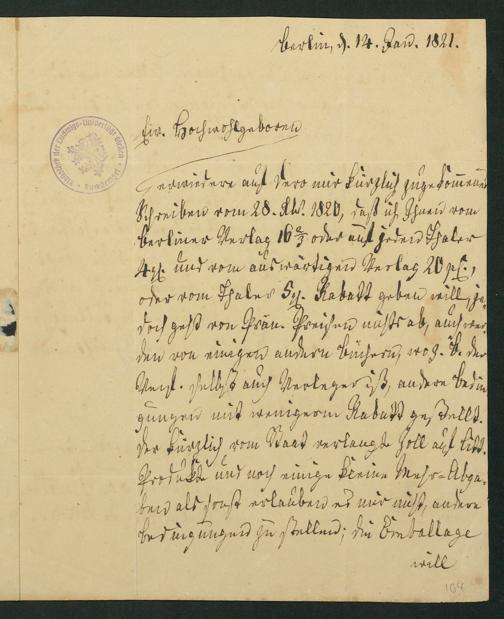 Berlin, d. 14. Jan. 1821.
Ew. Hochwohlgeboren
erwiedere auf Dero mir kürzlich zugekommene
Schreiben vom 28. Xbr. 1820, daß ich Ihnen vom
Berliner Verlag 16 2/3 oder auf jeden Thaler
4 gl. und vom auswärtigen Verlag 20 pC.,
oder vom Thaler 5 gl. Rabatt geben will, je-
doch geht von Prän. Preisen nichts ab, auch wer-
den von einigen andern Büchern, wo z. B. der
Verf. selbst auch Verleger ist, andere Bedin-
gungen mit wenigerm Rabatt gestellt.
Der kürzlich vom Staat verlangte Zoll auf Litt.
Produkte und noch einige kleine Mehr-Abga-
ben als sonst erlauben es mir nicht, andere
Bedingungen zu stellen; die Emballage
will
104